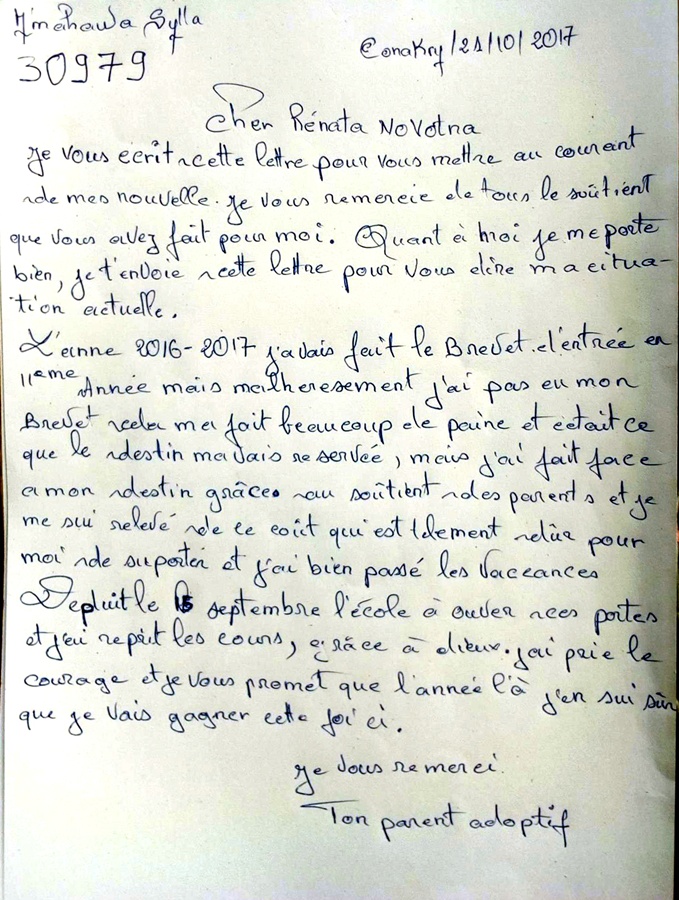 M'mahawa Sylla
Conakry/21/10/2017
30979
Cher Rénata Novotna
Je vous ecrit cette lettre pour vous mettre au courant
de mes nouvelle. Je vous remercie de tous le soûtient
que vous avez fait pour moi. Quant à moi je me porte
bien, je t'envoie cette lettre pour vous dire ma citua-
tion actuelle.
L'anne 2016-2017 j'avais fait le Brevet d'entrée en
11eme Année mais malheresement j'ai pas eu mon
Brevet cela ma fait beaucoup de paine et cétait ce
que le destin mavais reservée, mais j'ai fait face
a mon destin grâce au soûtient des parents et je
me sui relevé de ce coût qui est telement dûr pour
moi de supporter et j'ai bien passé les vaccances
Depluit le 15 septembre l'école à ouver ces portes
et j'ai reprit les cours, grâce à dieux. j'ai prie le
courage et je vous promet que l'année l'à j'en sui sûr
que je vais gagner cete foi ci.
Je vous remerci.
Ton parent adoptif